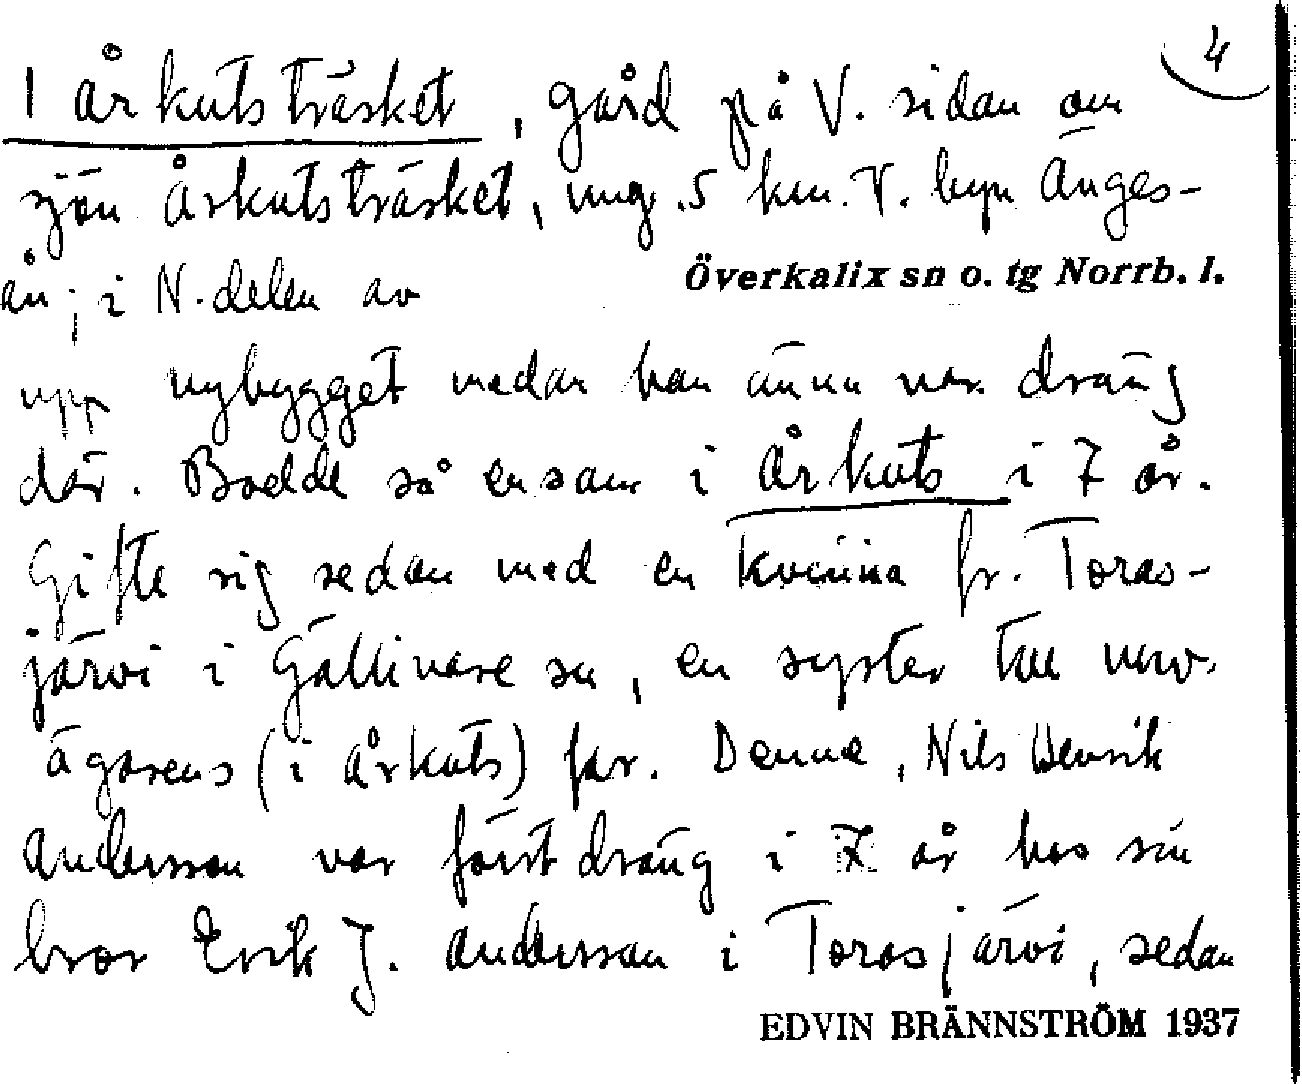 4
1 Årkutsträsket, gård på V. sidan om
sjön Årkutsträsket, ung. 5 km. V. byn Änges-
ån; i N. delen av
Överkalix sn o. tg Norrb. l.
upp nybygget medan han ännu var dräng
där. Bodde så ensam i Årkuts i 7 år.
Gifte sig sedan med en kvinna fr. Toras-
järvi i Gällivare sn, en syster till nuv.
ägarens (i Årkuts) far. Denne, Nils Henrik
Andersson var först dräng i 7 år hos sin
bror Erik J. Andersson i Torasjärvi, sedan
EDVIN BRÄNNSTRÖM 1937